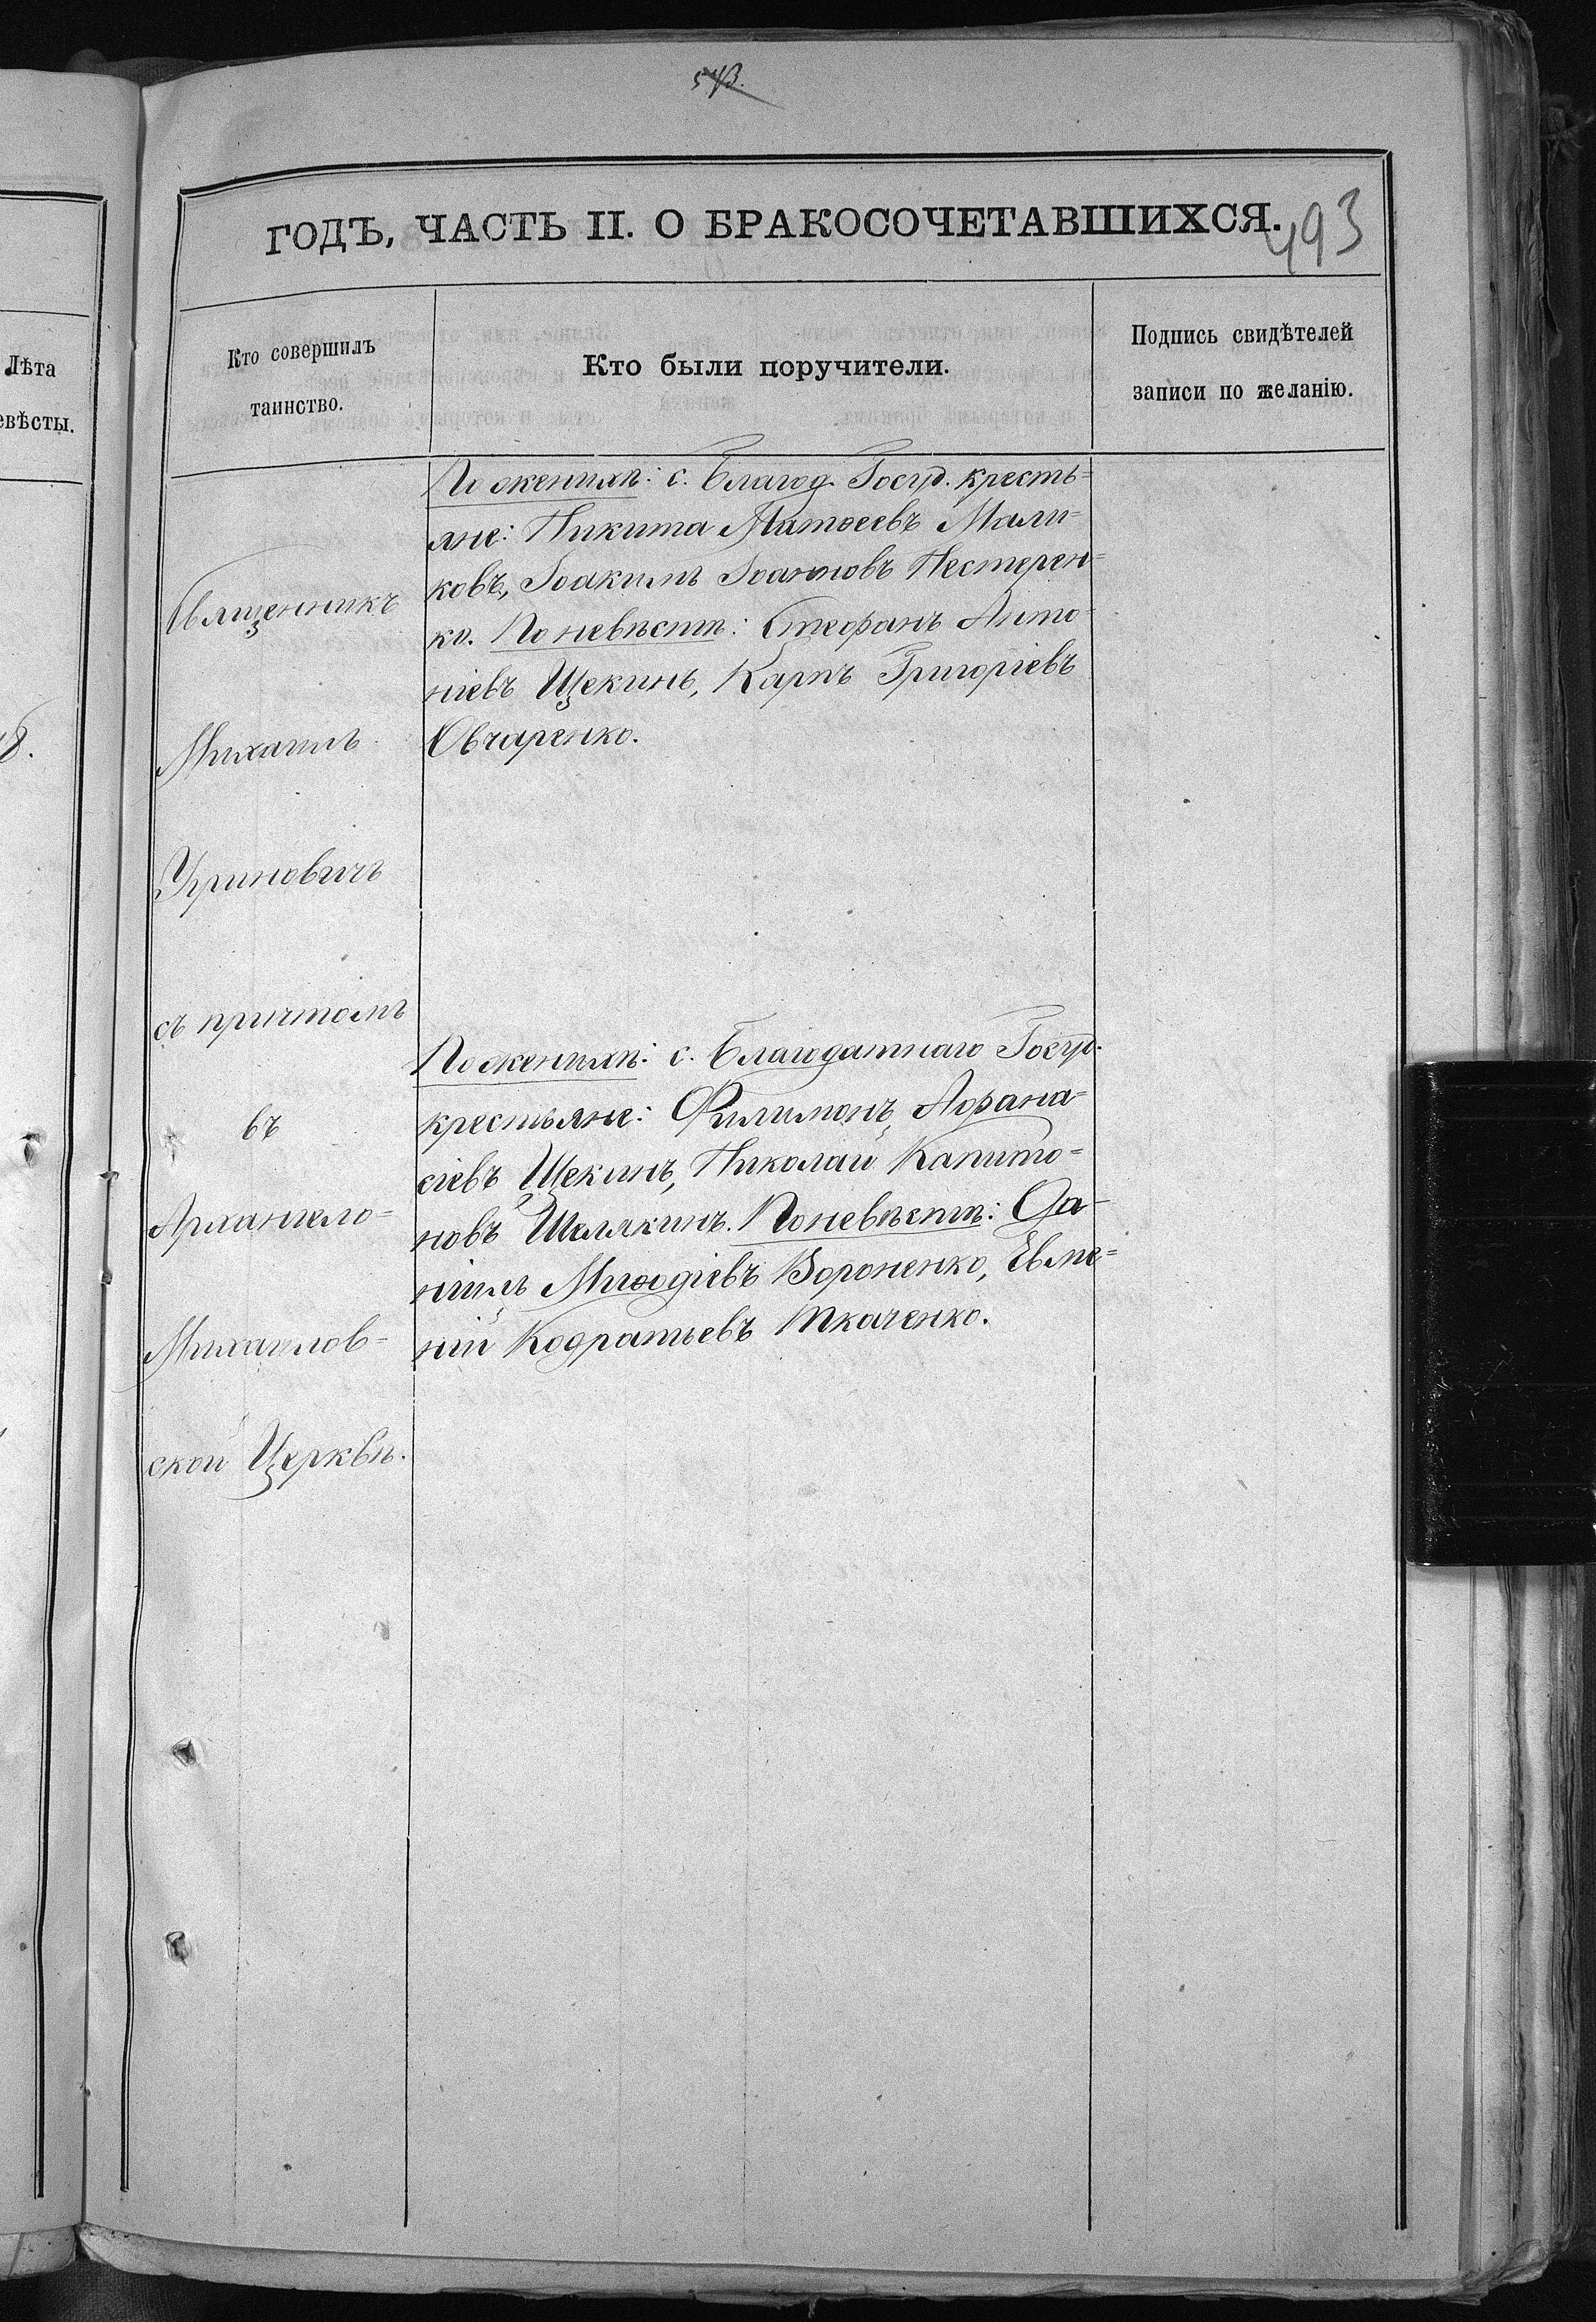 543.
ГОДЪ, ЧАСТЬ II. О БРАКОСОЧЕТАВШИХСЯ.
493
Лѣта
евѣсты.
Кто совершилъ
таинство.
Кто были поручители.
Подпись свидѣтелей
записи по желанію.
8.
Священникъ
Михаилъ
Угриновичъ
съ причтомъ
въ
Архангело-
Михаилов-
ской Церквѣ.
По женихѣ: с. Благод. Госуд. кресть-
яне: Никита Матвеевъ Мали-
ковъ, Іоакимъ Іоанновъ Нестерен-
ко. По невѣстѣ: Стефанъ Анто-
ніевъ Щекинъ, Карпъ Григоріевъ
Овчаренко.
По женихѣ: с. Благодатнаго Госуд.
крестьяне: Филимонъ Афана-
сіевъ Щекинъ, Николай Капито-
новъ Шалякинъ. По невѣстѣ: Да-
ніилъ Меѳодіевъ Вороненко, Евме-
ній Кодратьевъ Ткаченко.